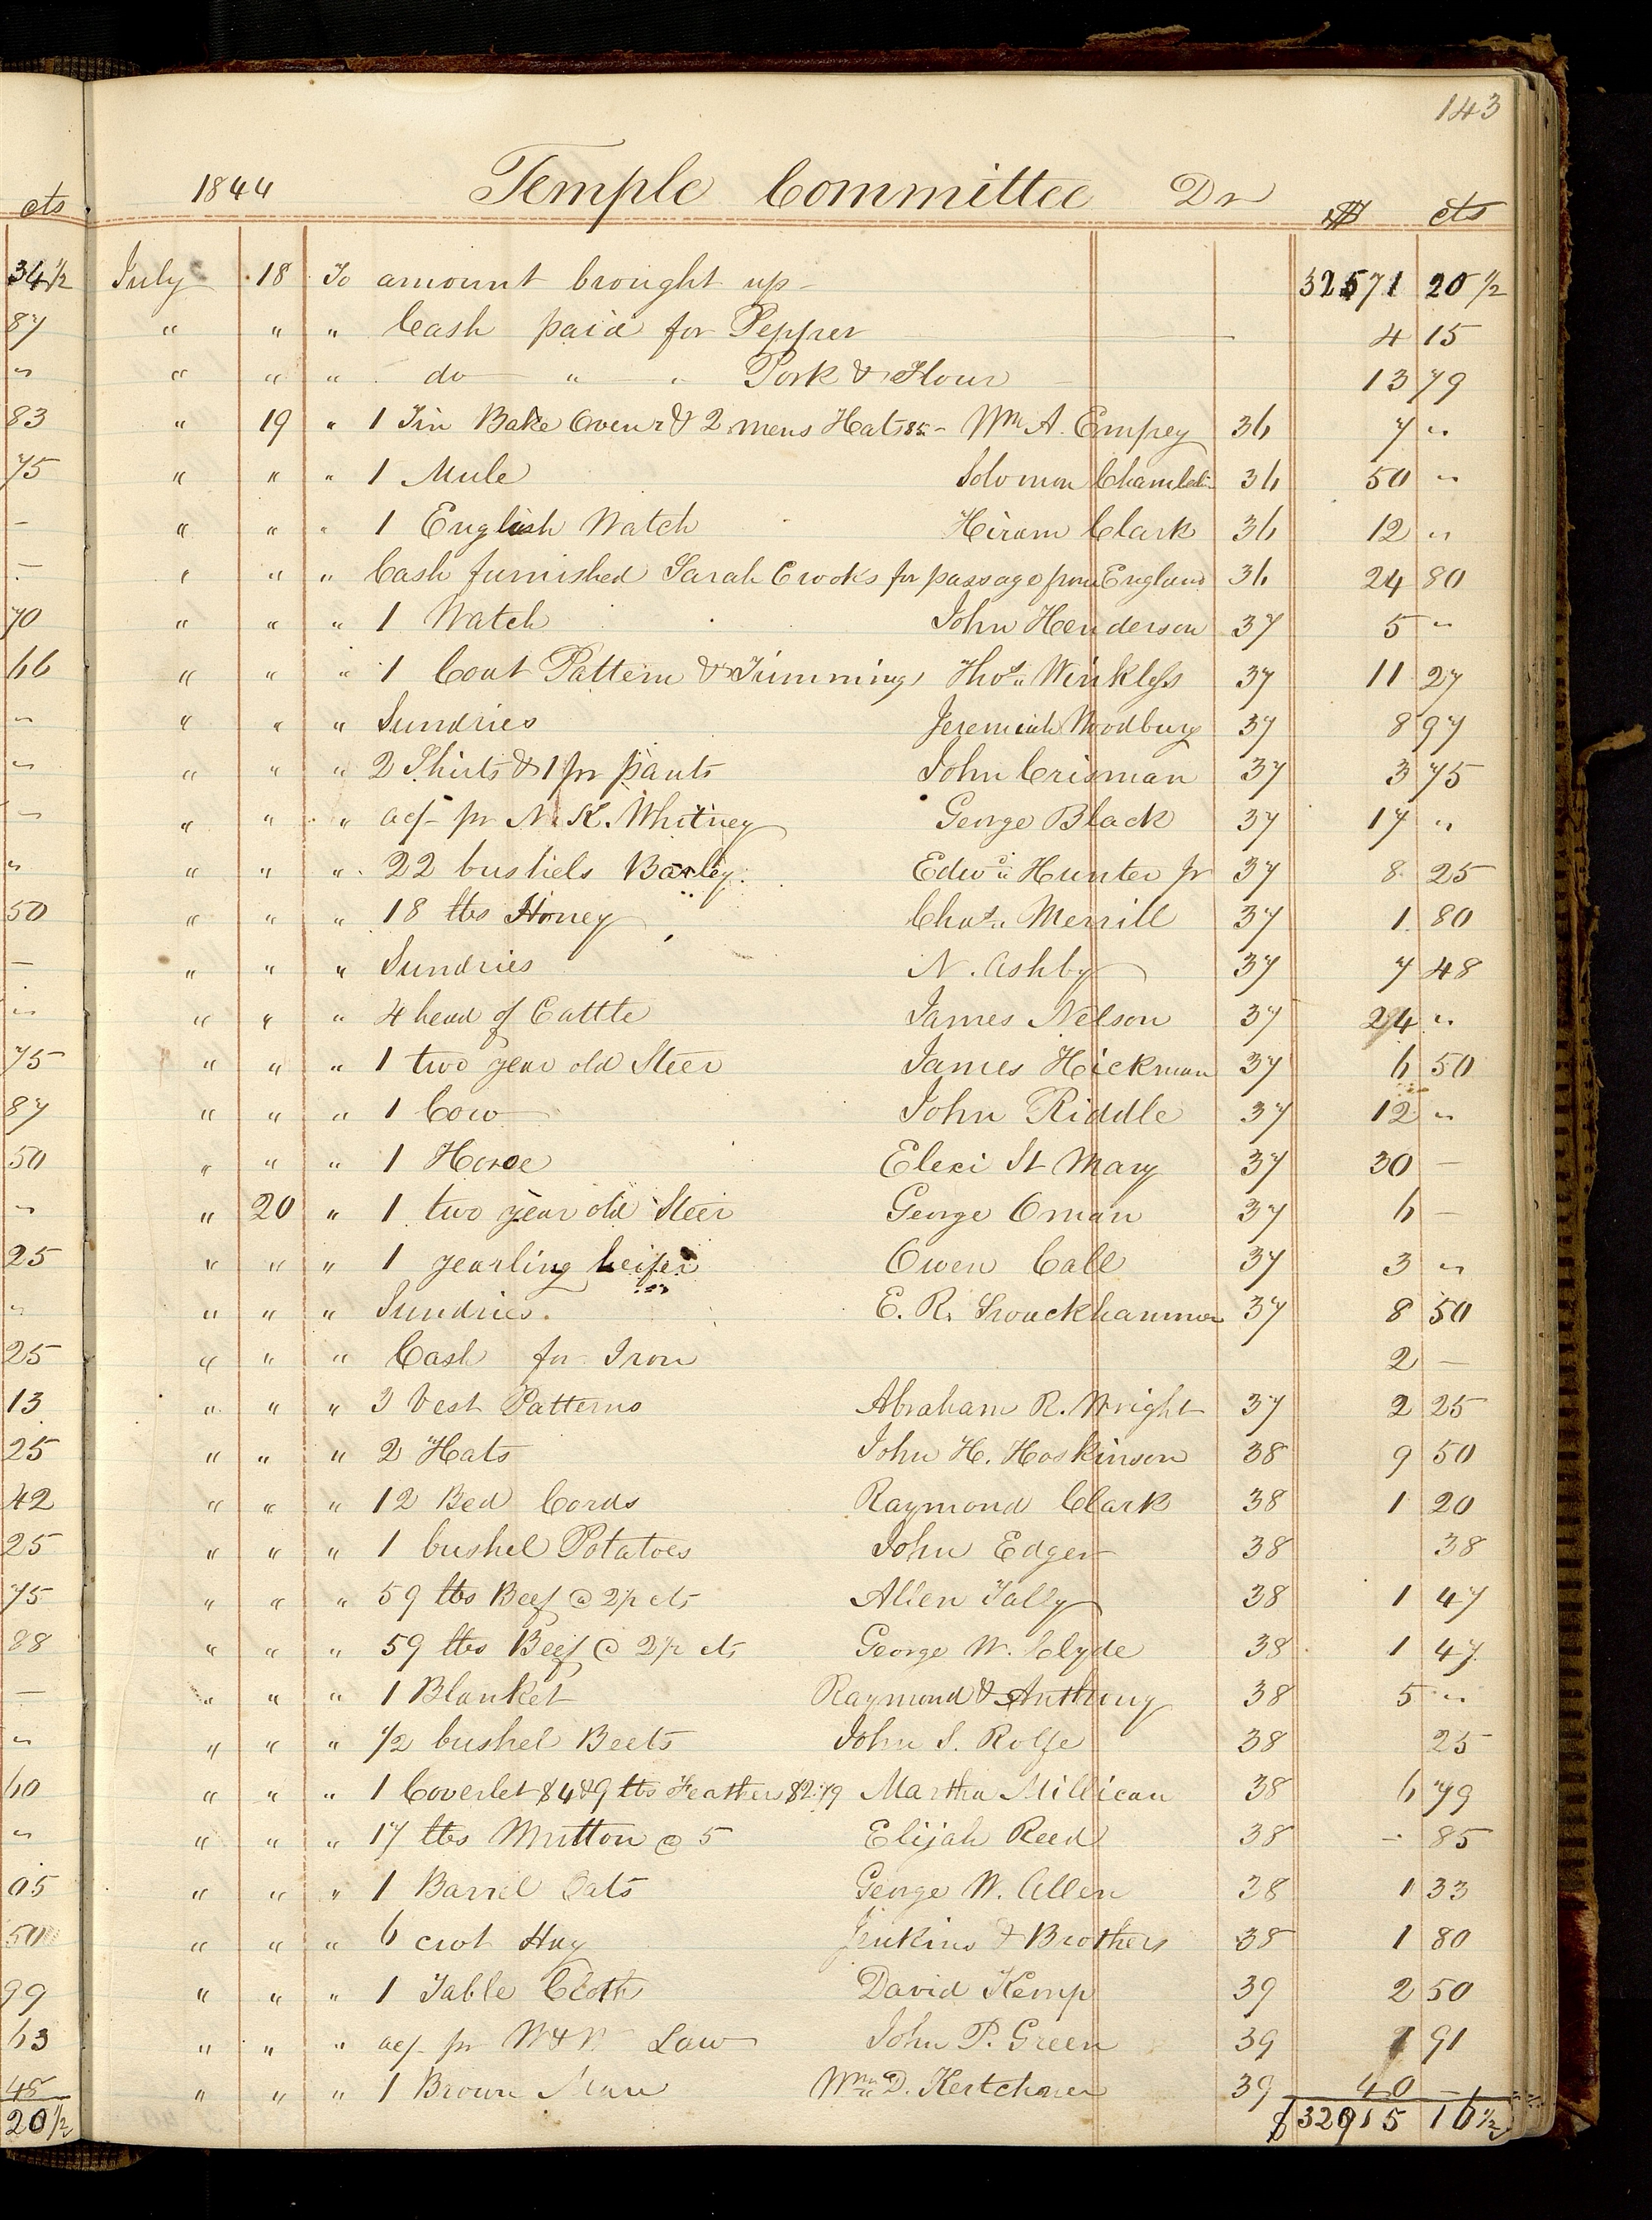 143
1844 Temple Committee Dr
cts $ cts
34 1/2 July 18 To amount brought up - 32571 20 1/2
87 " " " Cash paid for Pepper - 4 15
" " " " do " " Pork & Flour - 13 79
83 " 19 " 1 Tin Bake Oven 2 & 2 mens Hats $5 - Wm A. Empey 36 7 "
75 " " " 1 Mule Solomon Chamberlin 36 50 "
- " " " 1 English Watch Hiram Clark 36 12 "
- " " " Cash furnished Sarah Crooks for passage from England 36 24 80
70 " " " 1 Watch John Henderson 37 5 "
66 " " " 1 Coat Pattern & Trimmings Thos. Winkless 37 11 27
" " " " Sundries Jeremiah Woodbury 37 8 97
" " " " 2 Shirts & 1 pr pants John Crisman 37 3 75
" " " " acf- pr N. K. Whitney George Black 37 17 "
" " " " 22 bushels Barley Edwd. Hunter Jr 37 8 25
50 " " " 18 lbs Honey Chas. Merrill 37 1 80
- " " " Sundries N. Ashby 37 7 48
" " " " 4 head of Cattle James Nelson 37 24 "
75 " " " 1 two year old Steer James Hickman 37 6 50
87 " " " 1 Cow John Riddle 37 12 "
50 " " " 1 Horse Eleci St Mary 37 30 -
" " 20 " 1 two year old Steer George Oman 37 6 -
25 " " " 1 yearling heifer Owen Call 37 3 "
" " " " Sundries E. R. 37 8 50
25 " " " Cash for Iron 2 -
13 " " " 3 Vest Patterns Abraham R. Wright 37 2 25
25 " " " 2 Hats John H. Hoskinson 38 9 50
42 " " " 12 Bed Cords Raymond Clark 38 1 20
25 " " " 1 bushel Potatoes John Edger 38 38
75 " " " 59 lbs Beef @ 2 1/2 cts Allen Tally 38 1 47
88 " " " 59 lbs Beef @ 2 1/2 cts George W. Clyde 38 1 47
- " " " 1 Blanket Raymond & Anthony 38 5 "
" " " " 1/2 bushel Beets John S. Rolfe 38 25
60 " " " 1 Coverlet $4 & 9 lbs Feathers $2.79 Martha Millican 38 6 79
" " " " 17 lbs Mutton @ 5 Elijah Reed 38 - 85
05 " " " 1 Barrel Oats George W. Allen 38 1 33
50 " " " 6 cwt Hay Jenkins & Brothers 38 1 80
99 " " " 1 Table Cloth David Kemp 39 2 50
63 " " " acf- pr W & W Law John P. Green 39 91
48 " " " 1 Brown Mare Wm. D. Kertchner 39 40 -
20 1/2 $32915 16 1/2